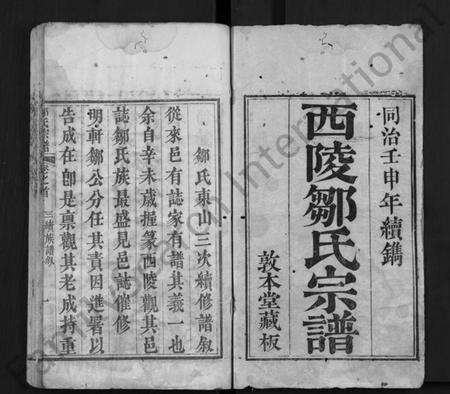 同治壬申年續鐫
西陵鄒氏宗譜
敦本堂藏板
鄒氏東山三次續修譜敘
從來邑有誌家有譜其義一也
余自辛未歲握篆西陵觀其邑
誌鄒氏族最盛見邑誌催修
明軒鄒公分任其責因進署以
告成在即是稟觀其老成持重
三續族譜敘
一
International